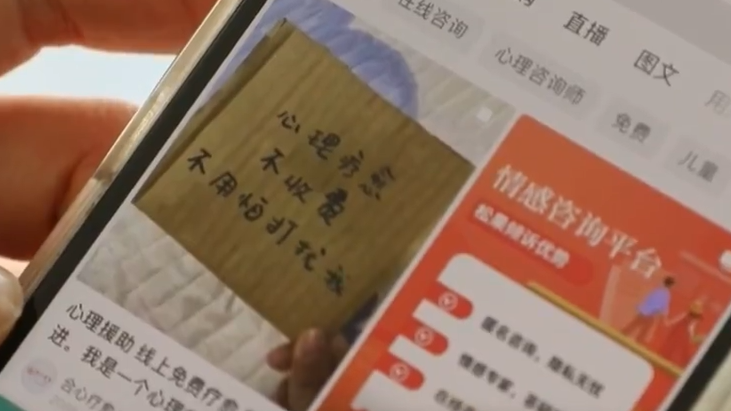 直播
图文
在线咨询
心理咨询师
免费
儿童
心理疗愈
不收费
不用怕打扰我
情感咨询平台
松果倾诉优势
匿名咨询，隐私无忧
情感专家，
心理援助 线上免费疗愈
进。我是一个心理
合心疗愈